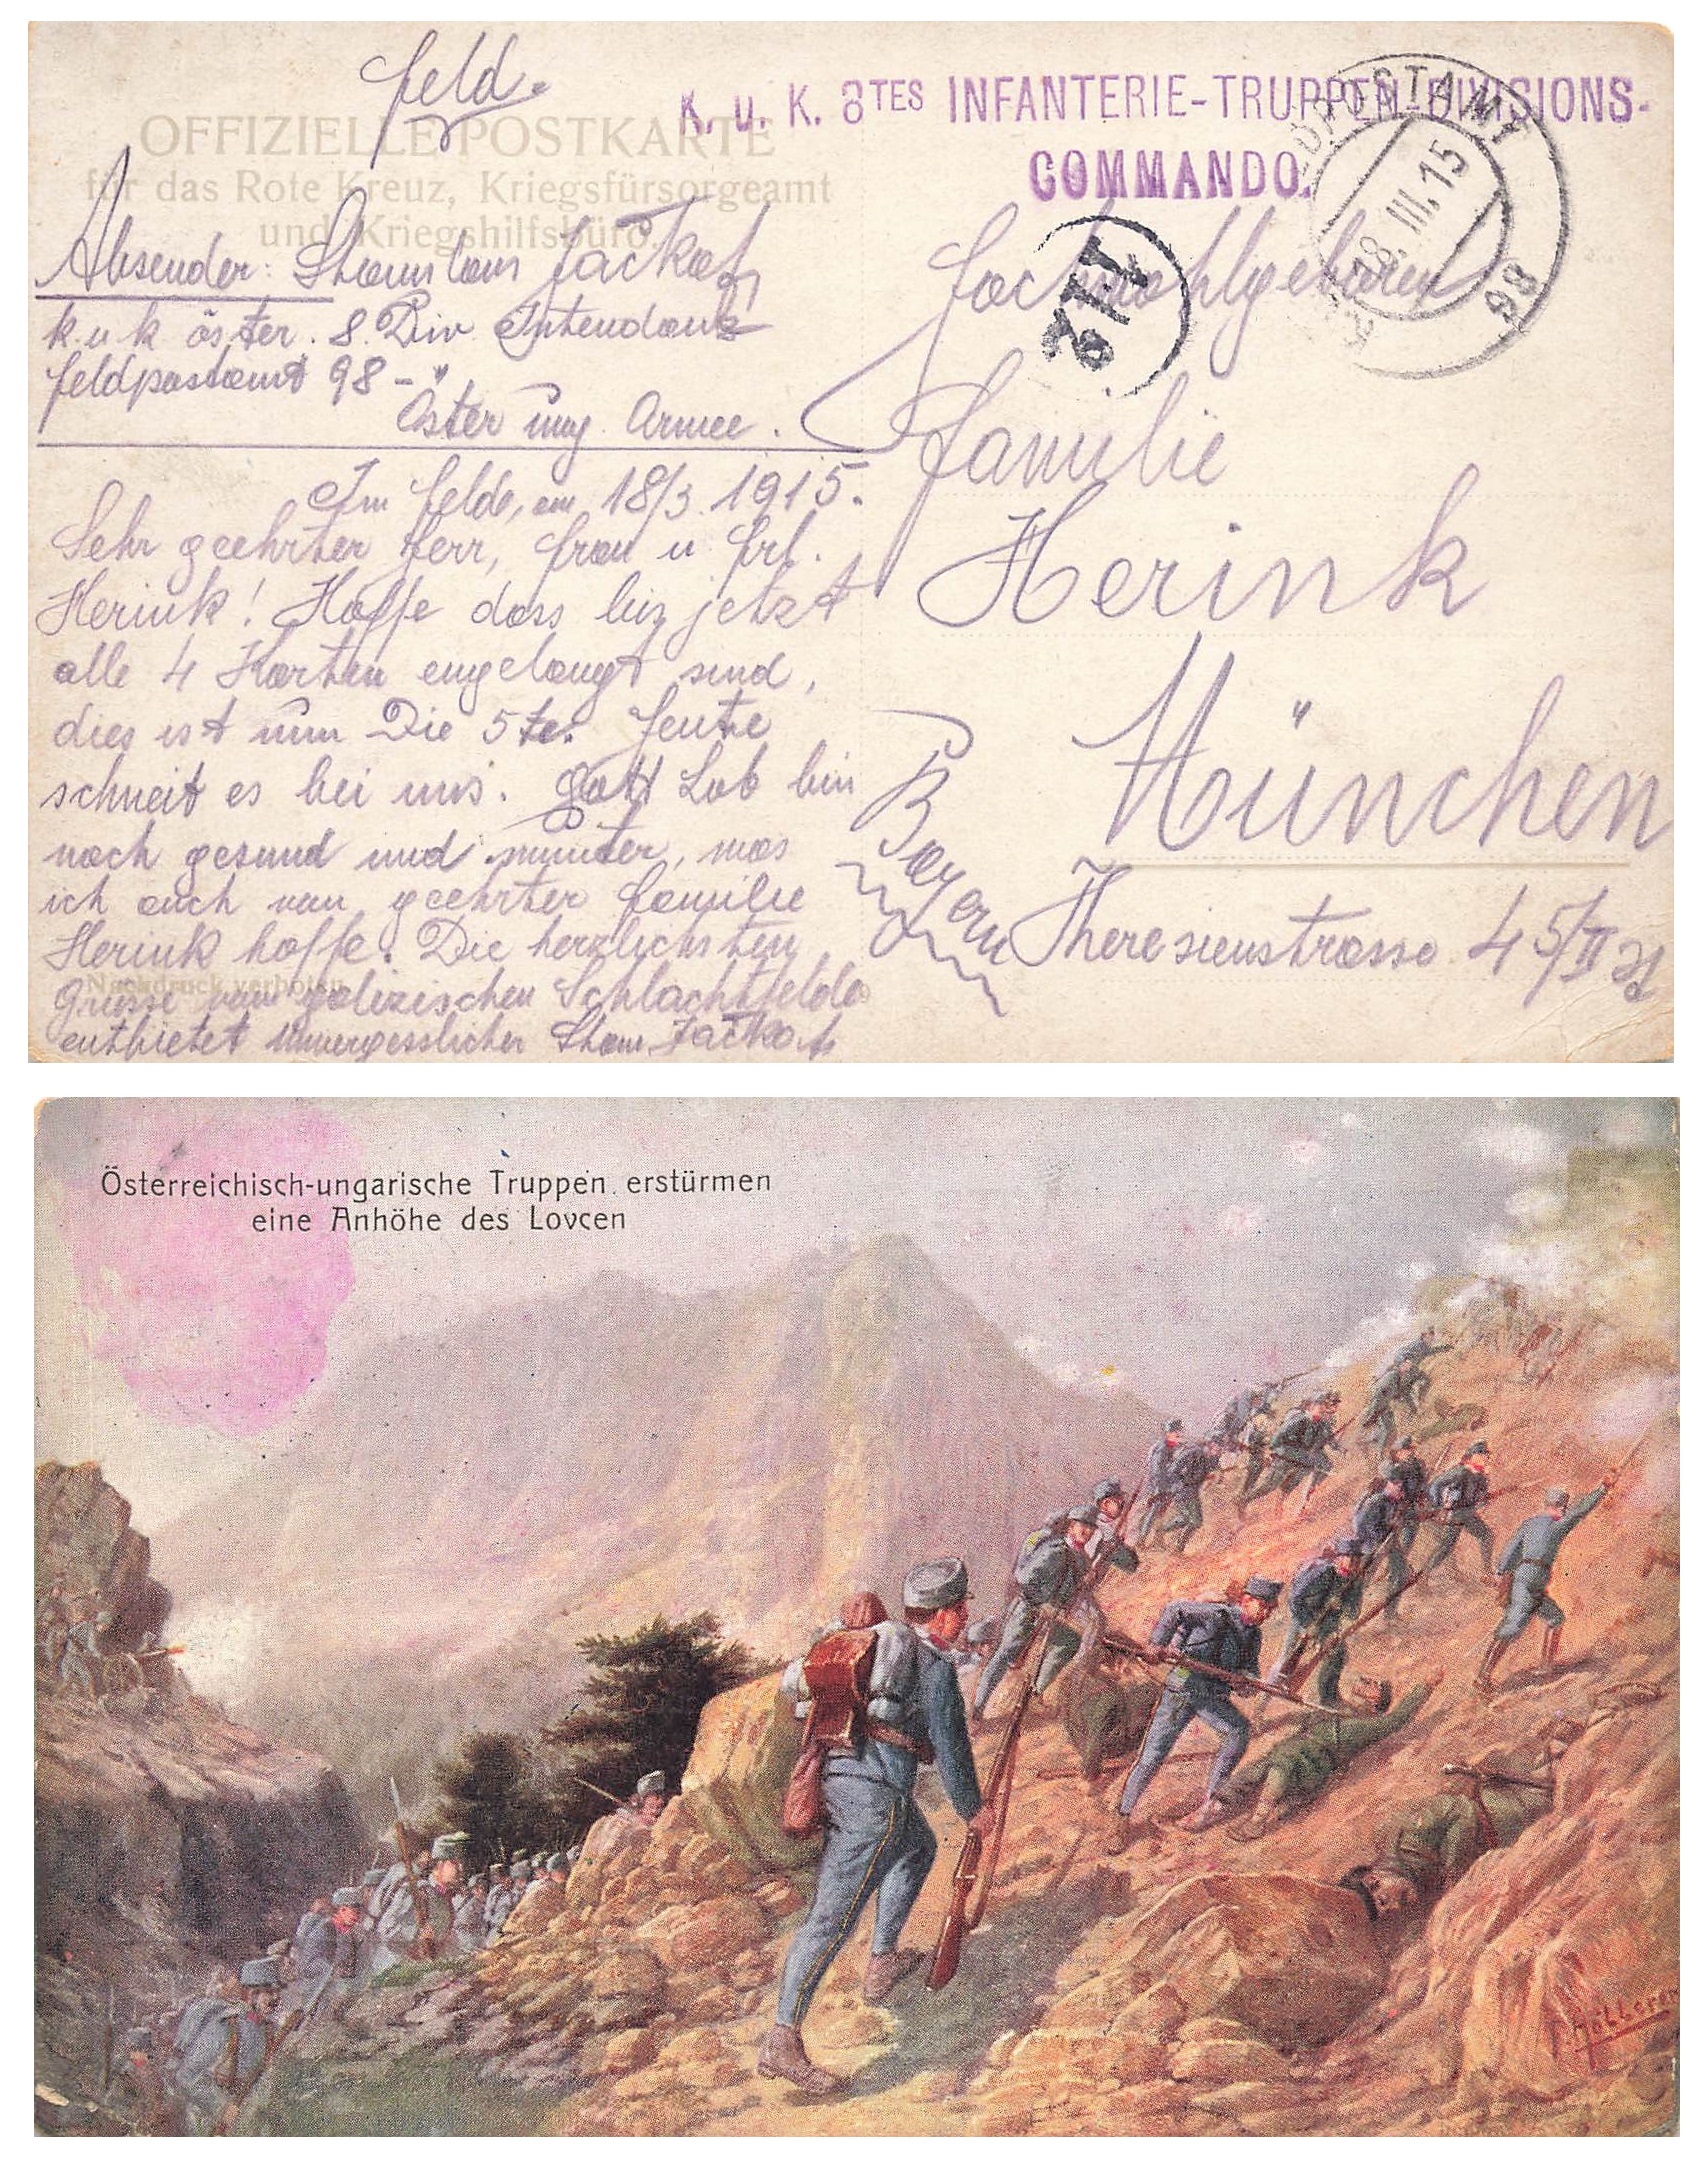 Feld.
OFFIZIELLE POSTKARTE
für das Rote Kreuz, Kriegsfürsorgeamt
und Kriegshilfsbüro.
K. u. K. 8TES INFANTERIE-TRUPPEN-DIVISIONS-
COMMANDO.
FELDPOSTAMT
18. III. 15
98
Absender:
k. u k öster. 8. Div. Intendanz
Feldpostamt 98 -
Öster ung. Armee.
Im Felde, am 18/3. 1915.
Sehr geehrter Herr, Frau u. Frl.
Herink! Hoffe dass bis jetzt
alle 4 Karten eingelangt sind,
dies ist nun Die 5te. Heute
schneit es bei uns. Gott Lob bin
noch gesund und munter, was
ich auch von geehrter Familie
Herink hoffe. Die herzlichsten
Grüsse vom galizischen Schlachtfelde
entbietet unvergesslicher
Nachdruck verboten
Hochwohlgeboren
Familie
Herink
München
Bayern
Theresienstrasse 45/II
Österreichisch-ungarische Truppen erstürmen
eine Anhöhe des Lovcen